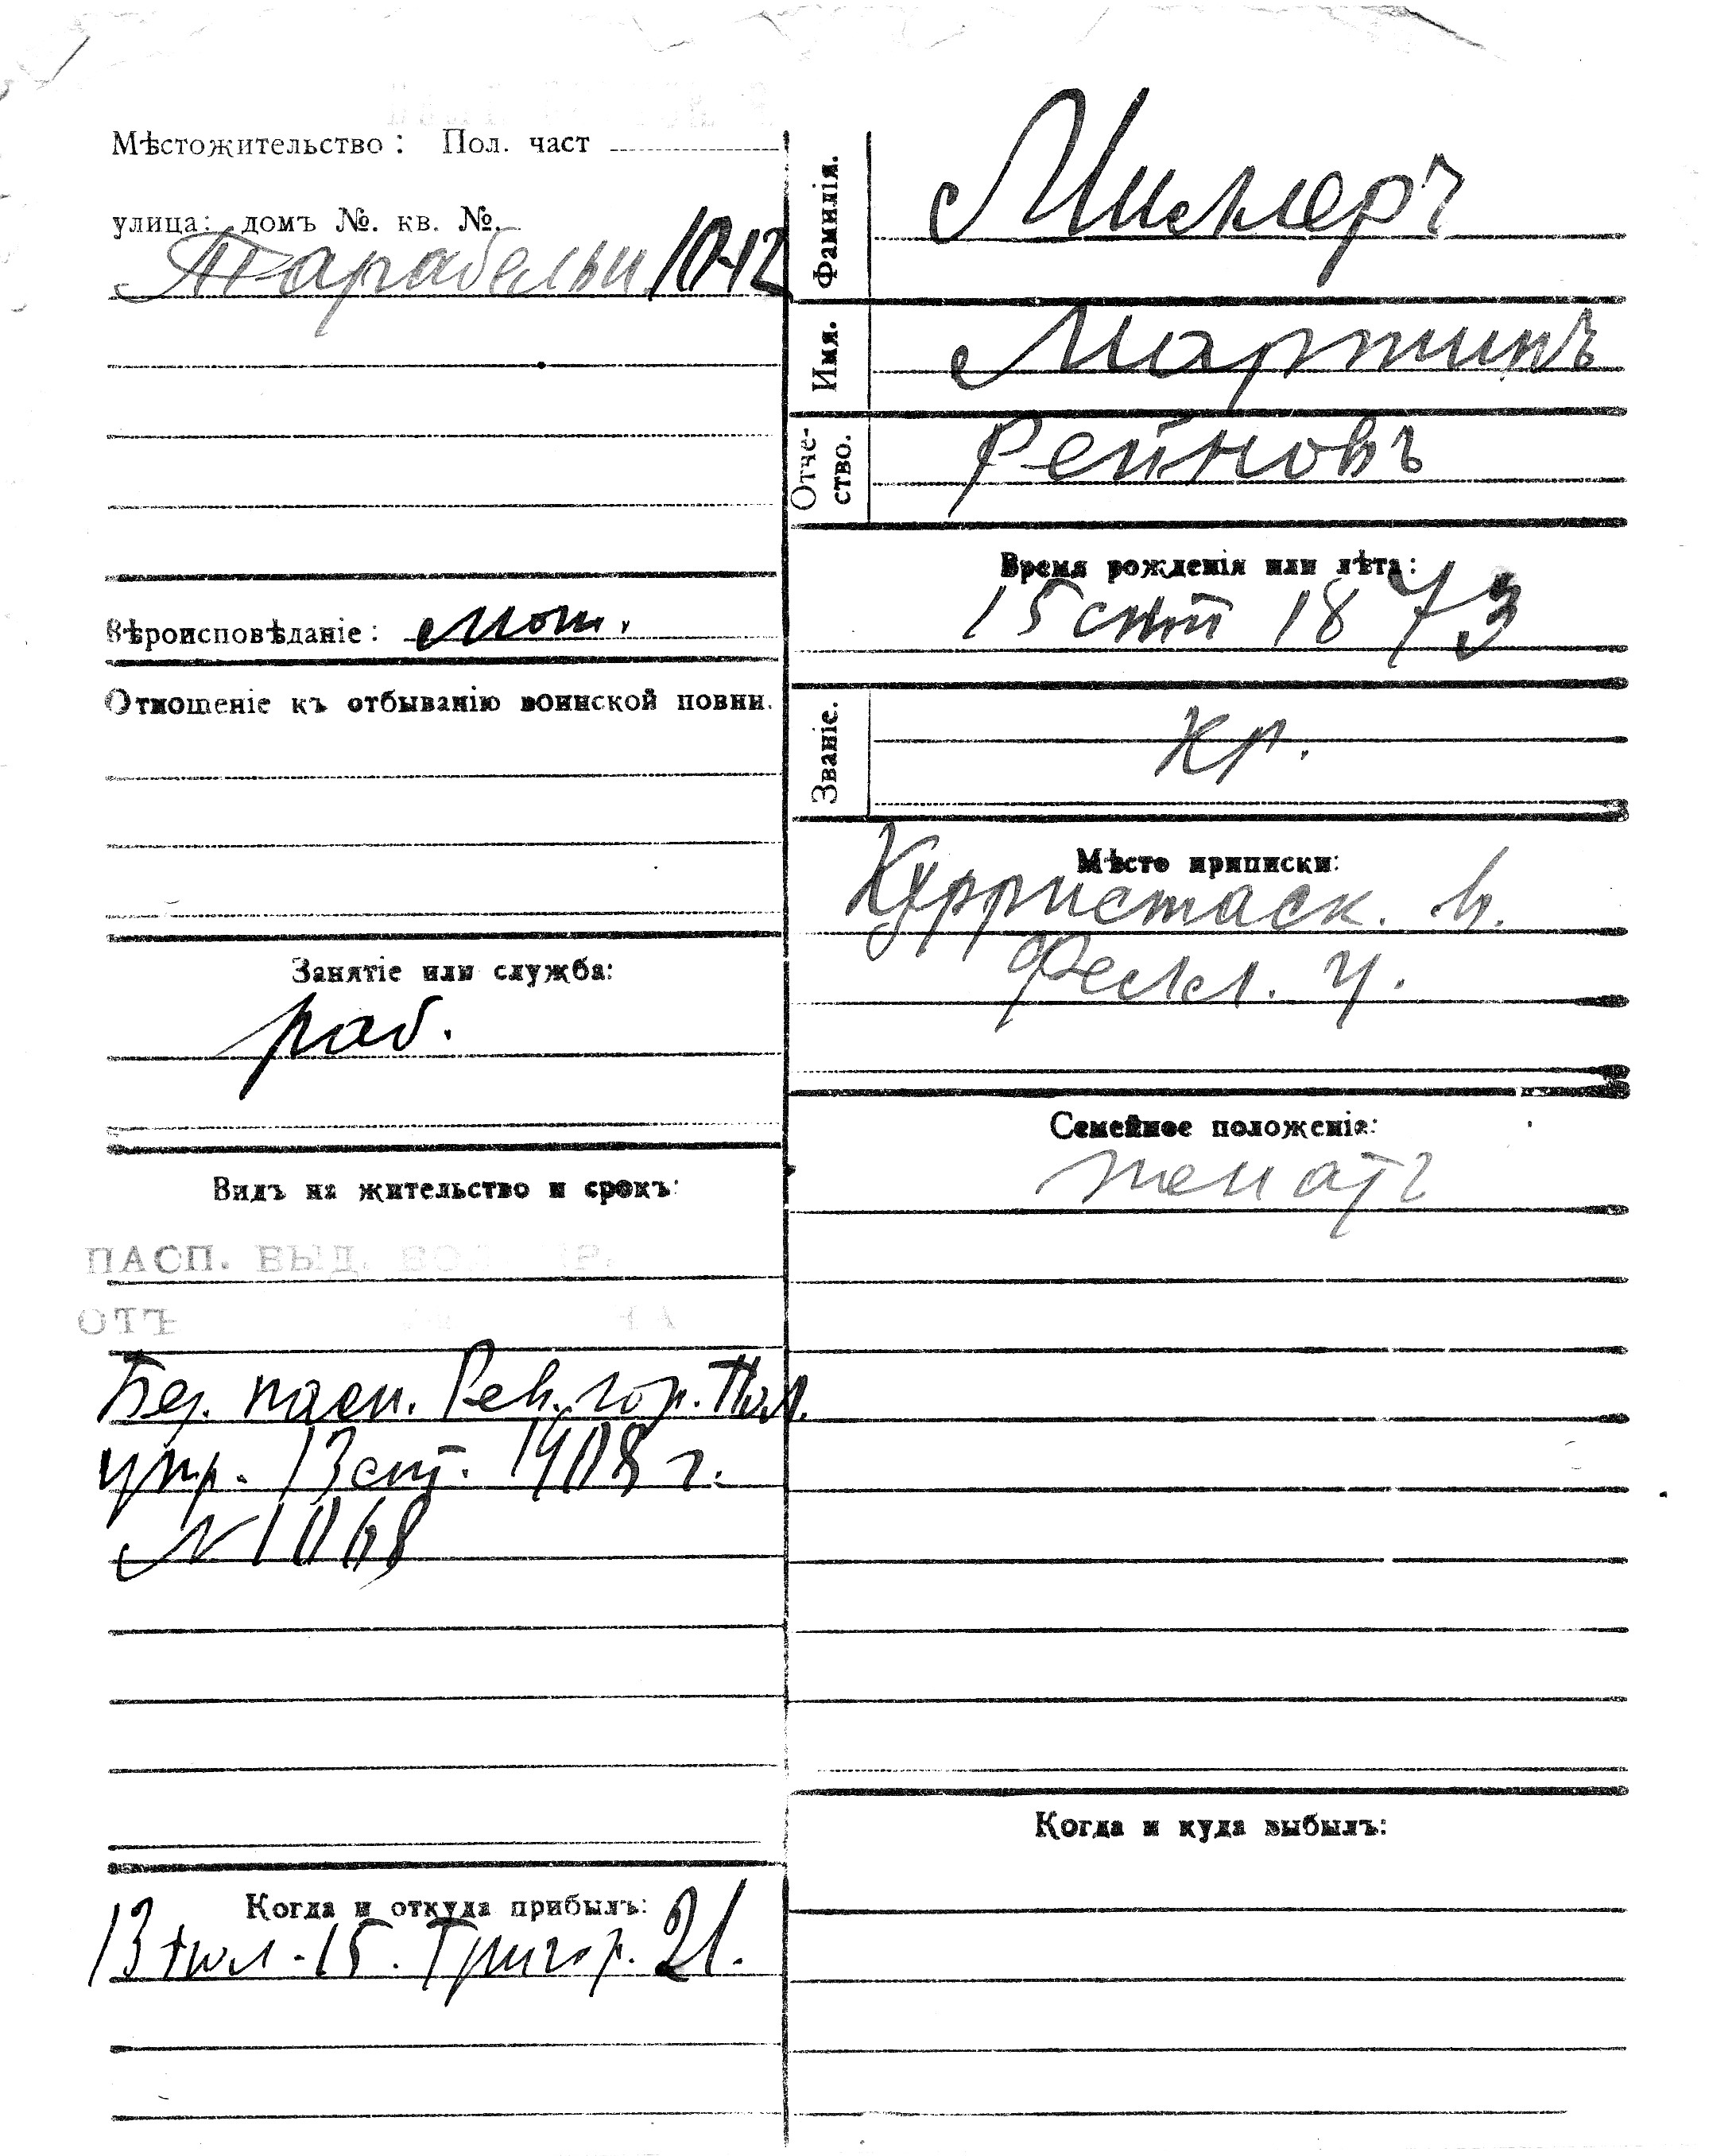 Мѣстожительство: Пол. част
улица: домъ №. кв. №.
Тарабельи 10-12
Вѣроисповѣданіе: Лют.
Отношеніе къ отбыванію воинской повни.
Занятіе или служба:
раб.
Видъ на жительство и срокъ:
ПАСП. ВЫД. ВОЛ. ПР.
ОТЪ
Без. пасп. Рев. гор. Пол.
упр. 13 сент. 1908 г.
№ 1068
Когда и откуда прибылъ:
13 июл. 15. Григор. 21.
Фамилія.
Миллеръ
Имя.
Мартинъ
Отче-
ство.
Рейновъ
Время рожденія или лѣта:
15 сент 1873
Званіе.
кр.
Мѣсто приписки:
Курристаск. в.
Фелл. у.
Семейное положеніе:
женатъ
Когда и куда выбылъ: